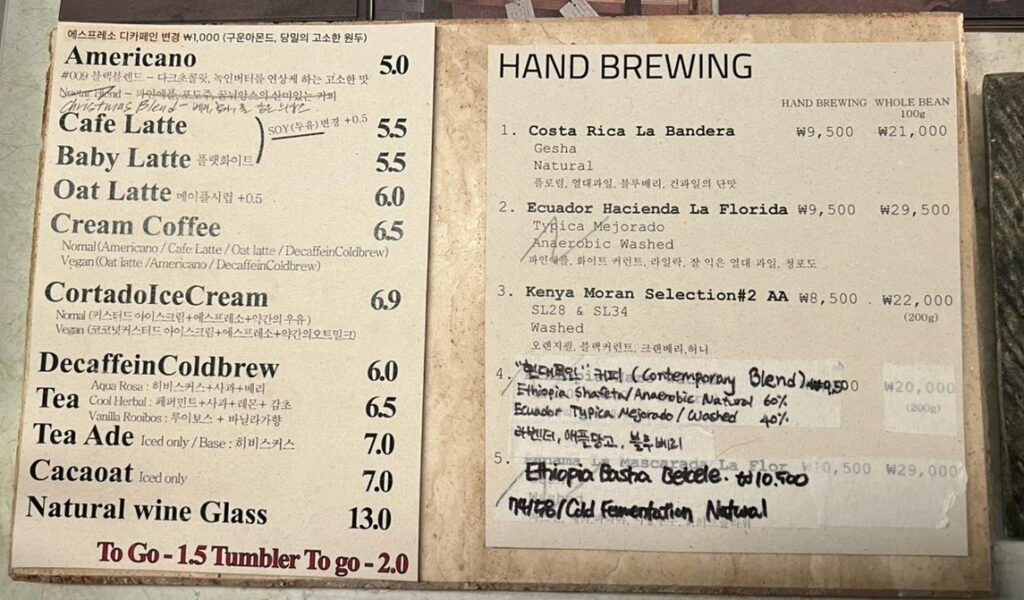 에스프레소 디카페인 변경 ₩1,000 (구운아몬드, 당밀의 고소한 원두)
Americano 5.0
#009 블랙블렌드 – 다크초콜릿, 녹인버터를 연상케 하는 고소한 맛
Nectar Blend – 파인애플, 포도주, 꿀뉘앙스의 산미있는 커피
Christmas Blend -
Cafe Latte 5.5
SOY(두유)변경 +0.5
Baby Latte 플랫화이트 5.5
Oat Latte 메이플시럽 +0.5 6.0
Cream Coffee 6.5
Nomal(Americano / Cafe Latte / Oat latte / DecaffeinColdbrew)
Vegan(Oat latte /Americano / DecaffeinColdbrew)
CortadoIceCream 6.9
Nomal (커스터드 아이스크림+에스프레소+약간의 우유)
Vegan (코코넛커스터드 아이스크림+에스프레소+약간의오트밀크)
DecaffeinColdbrew 6.0
Aqua Rosa : 히비스커스+사과+베리
Tea Cool Herbal : 페퍼민트+사과+레몬+ 감초 6.5
Vanilla Rooibos : 루이보스 + 바닐라가향
Tea Ade Iced only / Base : 히비스커스 7.0
Cacaoat Iced only 7.0
Natural wine Glass 13.0
To Go - 1.5 Tumbler To go - 2.0
HAND BREWING
HAND BREWING WHOLE BEAN
100g
1. Costa Rica La Bandera ₩9,500 ₩21,000
Gesha
Natural
플로럴, 열대과일, 블루베리, 건과일의 단맛
2. Ecuador Hacienda La Florida ₩9,500 ₩29,500
Typica Mejorado
Anaerobic Washed
파인애플, 화이트 커런트, 라일락, 잘 익은 열대 과일, 청포도
3. Kenya Moran Selection#2 AA ₩8,500 ₩22,000
(200g)
SL28 & SL34
Washed
오렌지필, 블랙커런트, 크랜베리,허니
4. "현대목안" 커피 (Contemporary Blend) ₩9,500 ₩20,000
(200g)
Ethiopia Shafeta/Anaerobic Natural 60%
Ecuador Typica Mejorado / Washed 40%
라벤더, 애플망고, 블루베리
5. Panama La Mascarada La Flor ₩10,500 ₩29,000
Ethiopia Basha Bekele. ₩10.500
74158/Cold Fermentation Natural